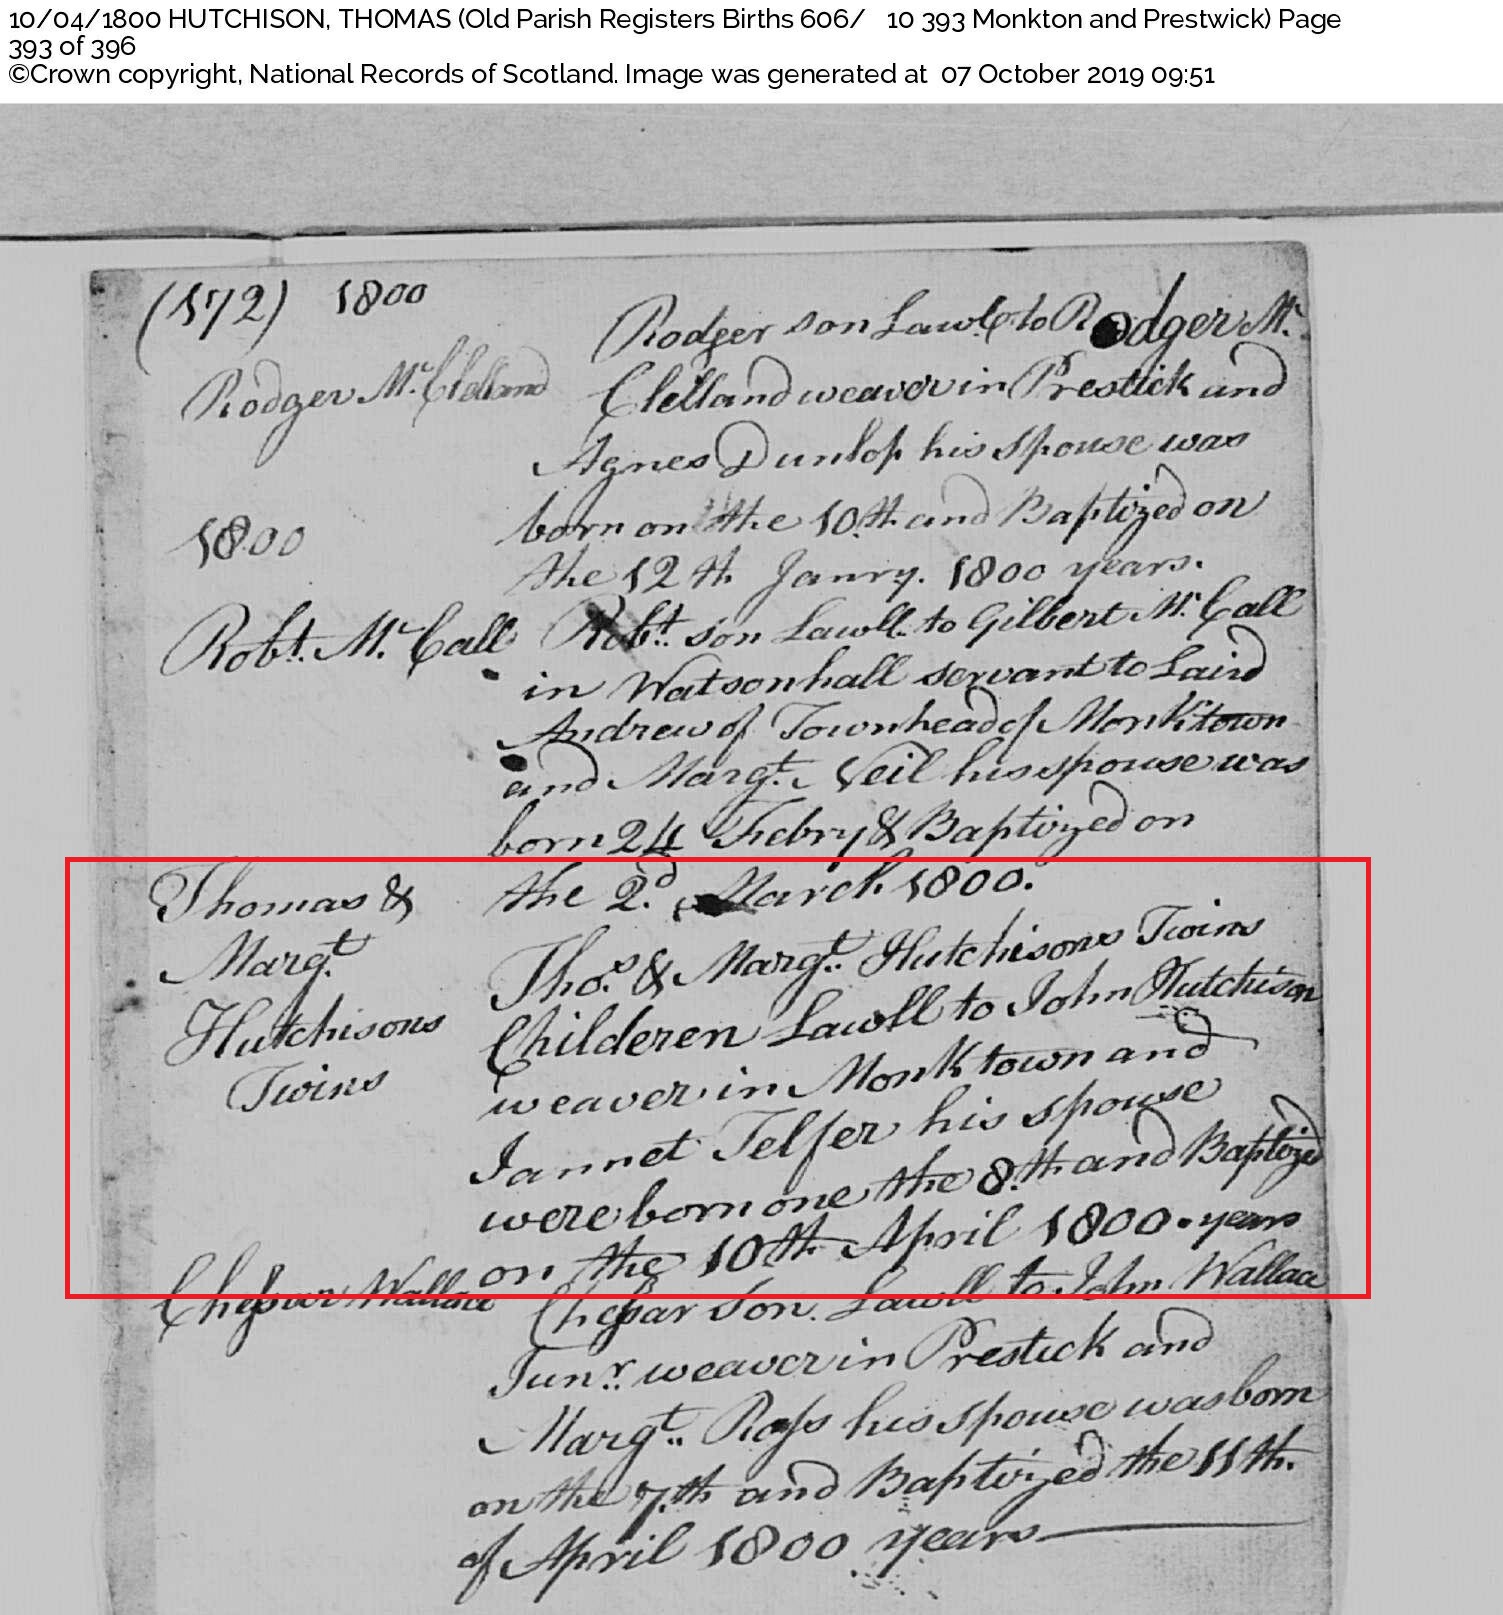 10/04/1800 HUTCHISON, THOMAS (Old Parish Registers Births 606/ 10 393 Monkton and Prestwick) Page
393 of 396
©Crown copyright, National Records of Scotland. Image was generated at 07 October 2019 09:51
(172) 1800
Rodger Mc. Clelland
Rodger son Lawl to Rodger Mc.
Clelland weaver in Prestick and
Agnes Dunlop his spouse was
born on the 10th and Baptized on
the 12th Janry. 1800 years.
1800
Robt. Mc. Call
Robt. son Lawll. to Gilbert Mc. Call
in Watsonhall servant to Laird
Andrew of Townhead of Monktown
and Margt. Neil his spouse was
born 24 Febry & Baptized on
the 2d. March 1800.
Thomas &
Margt.
Hutchisons
Twins
Thos. & Margt. Hutchisons Twins
Childeren Lawll to John Hutchison
weaver in Monktown and
Jannet Telfer his spouse
were born one the 8th and Baptized
on the 10th April 1800. years
Chessar Wallace
Chessar son. Lawll to John Wallace
Junr. weaver in Prestick and
Margt. Ross his spouse was born
on the 7th and Baptized the 11th.
of April 1800 years